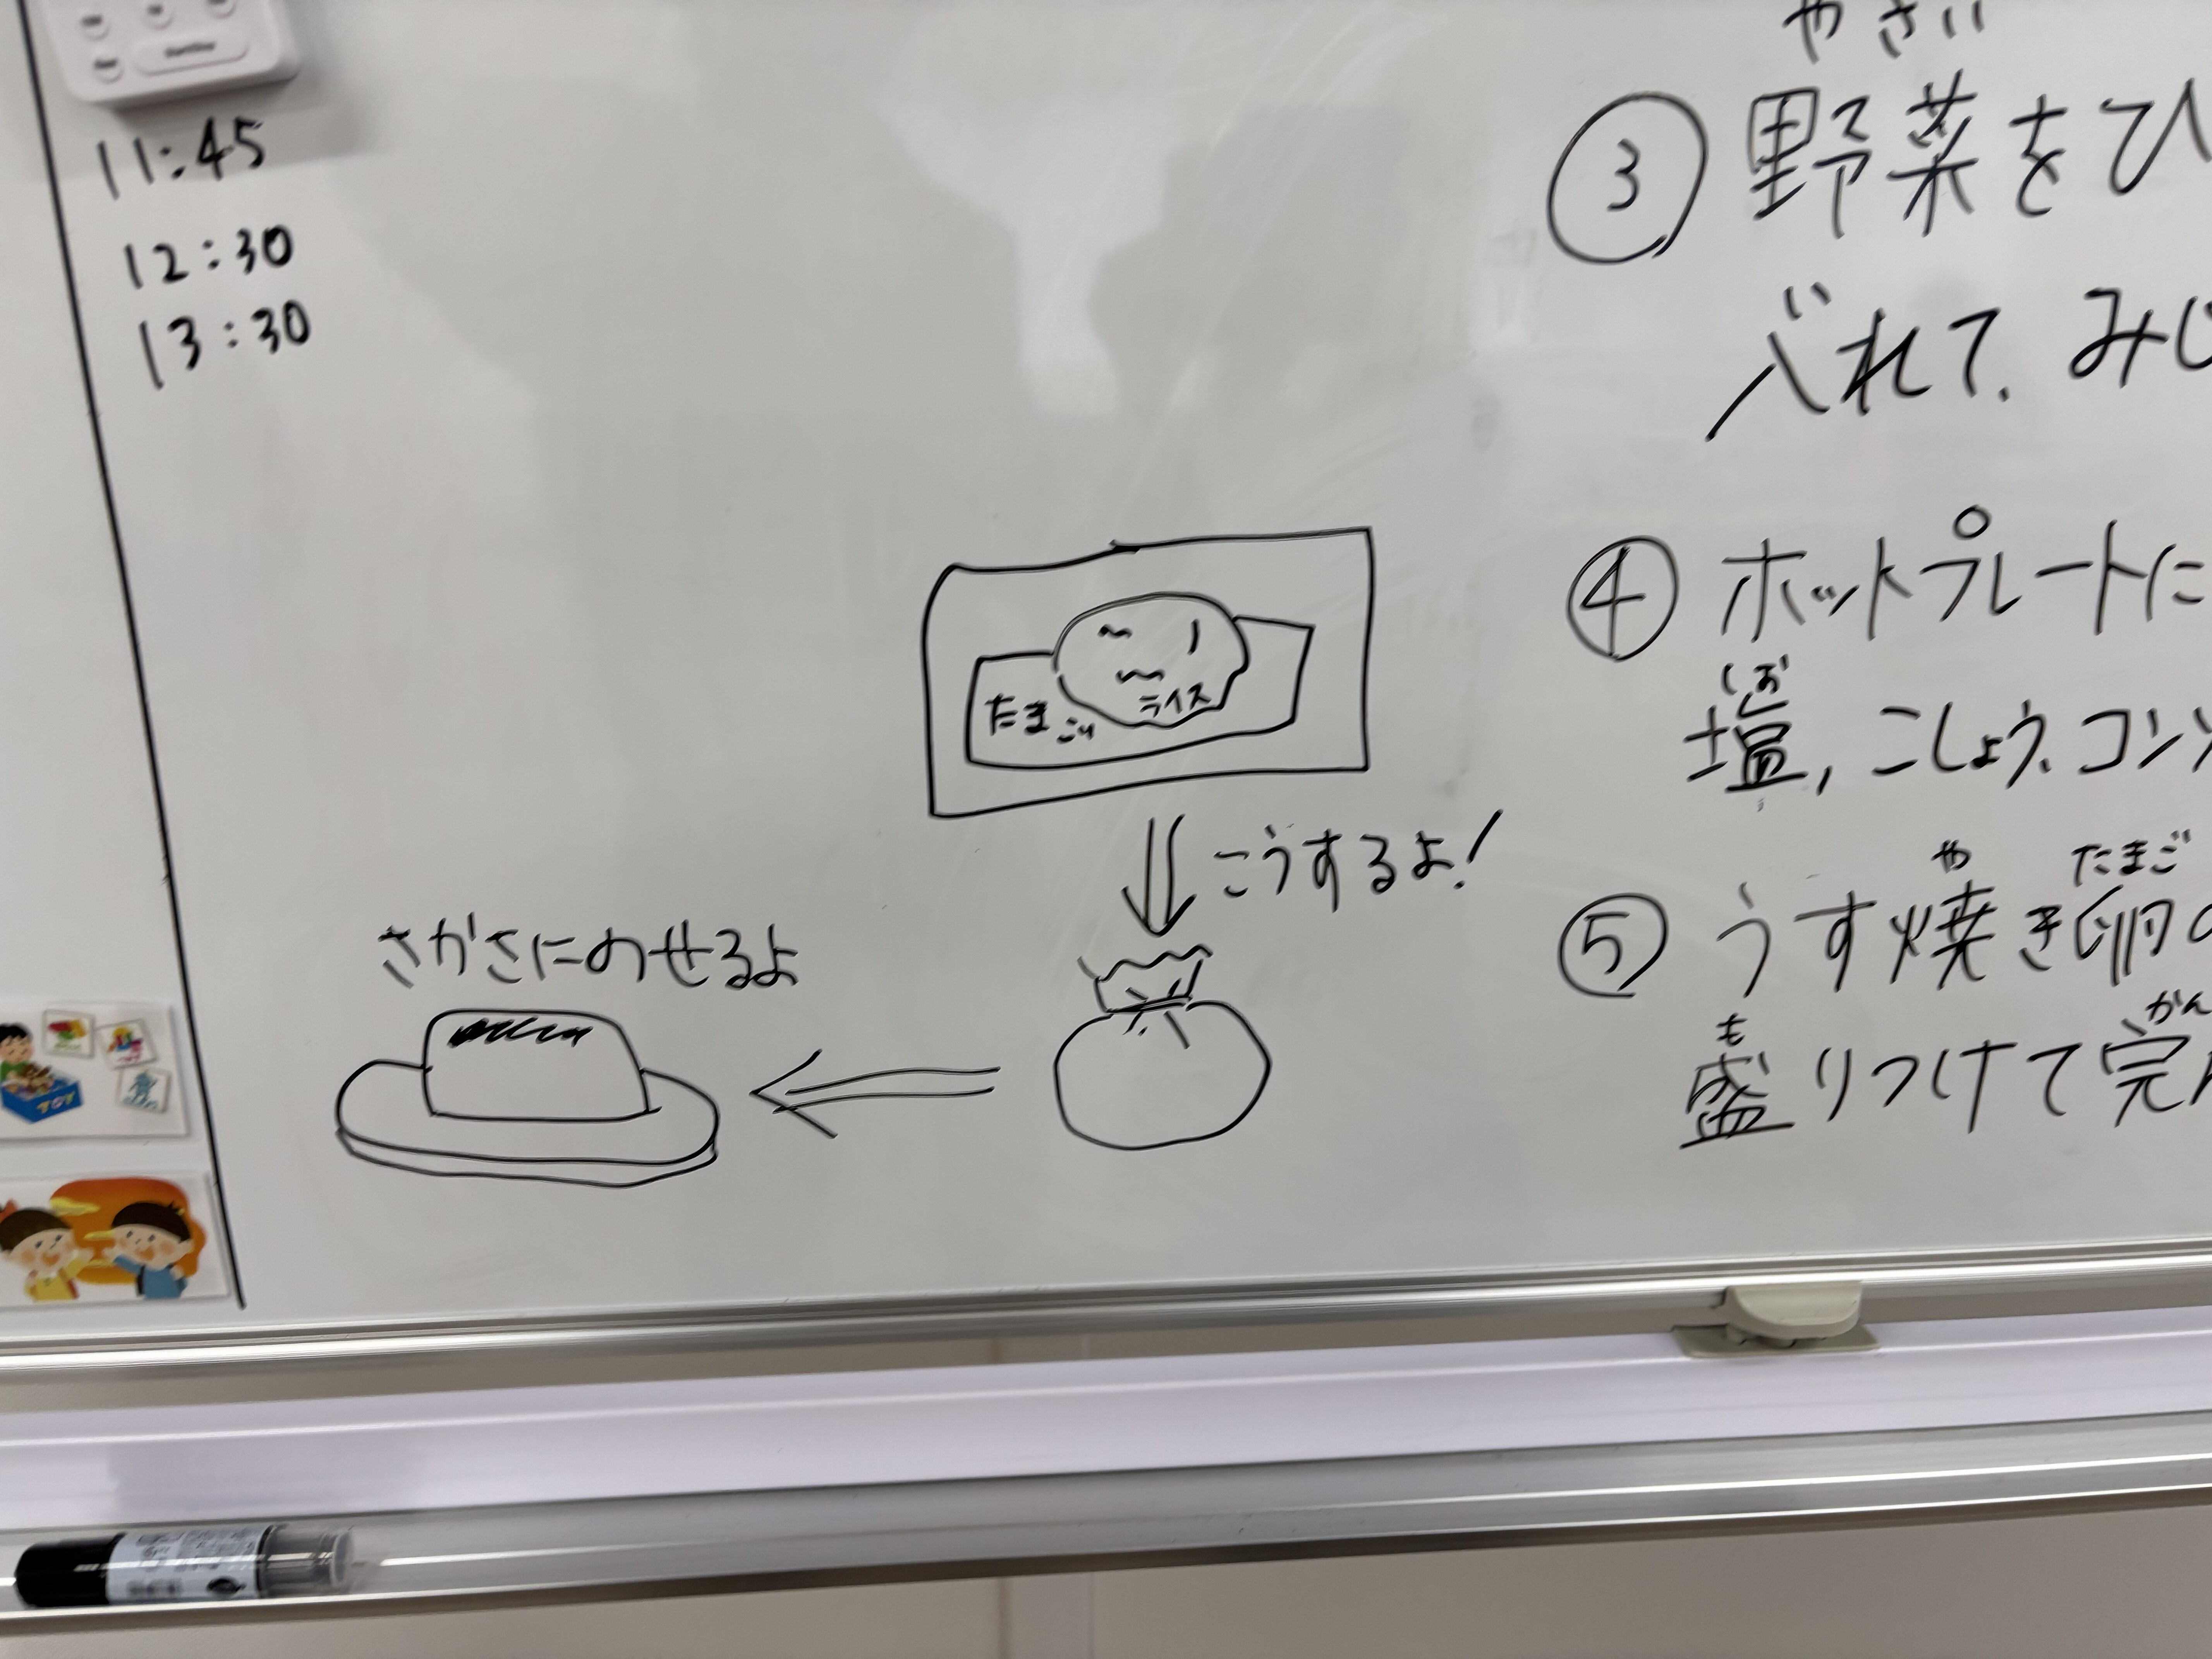 11:45
12:30
13:30
やさい
③ 野菜をひ
べれて、みじ
④ ホットプレートに
しお
塩,こしょう、コンソ
や たまご
⑤ うす焼き卵の
も かん
盛りつけて完
たまご
ライス
こうするよ!
さかさにのせるよ
TOY